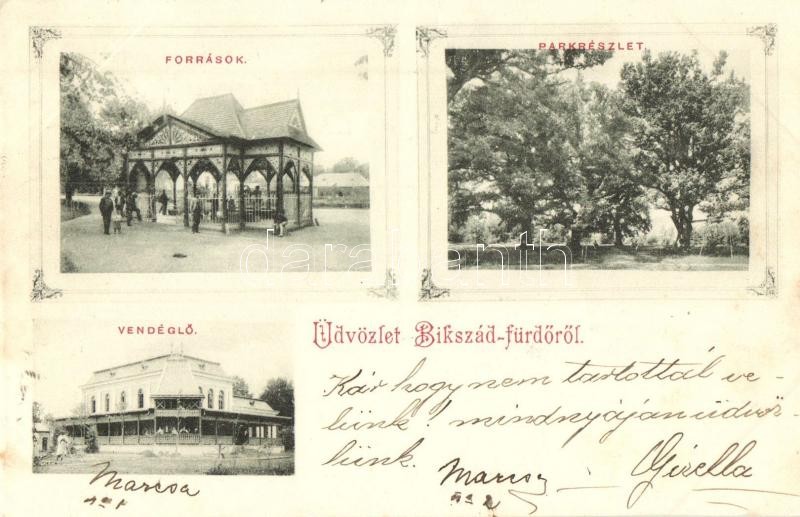 FORRÁSOK.
PARKRÉSZLET
darabanth
VENDÉGLŐ.
Üdvözlet Bikszád-fürdőről.
Kár hogy nem tartottál ve-
lünk! mindnyájan üdvöz-
lünk.
Marcsa
№ 1
Marcsa
№ 2
Gizella